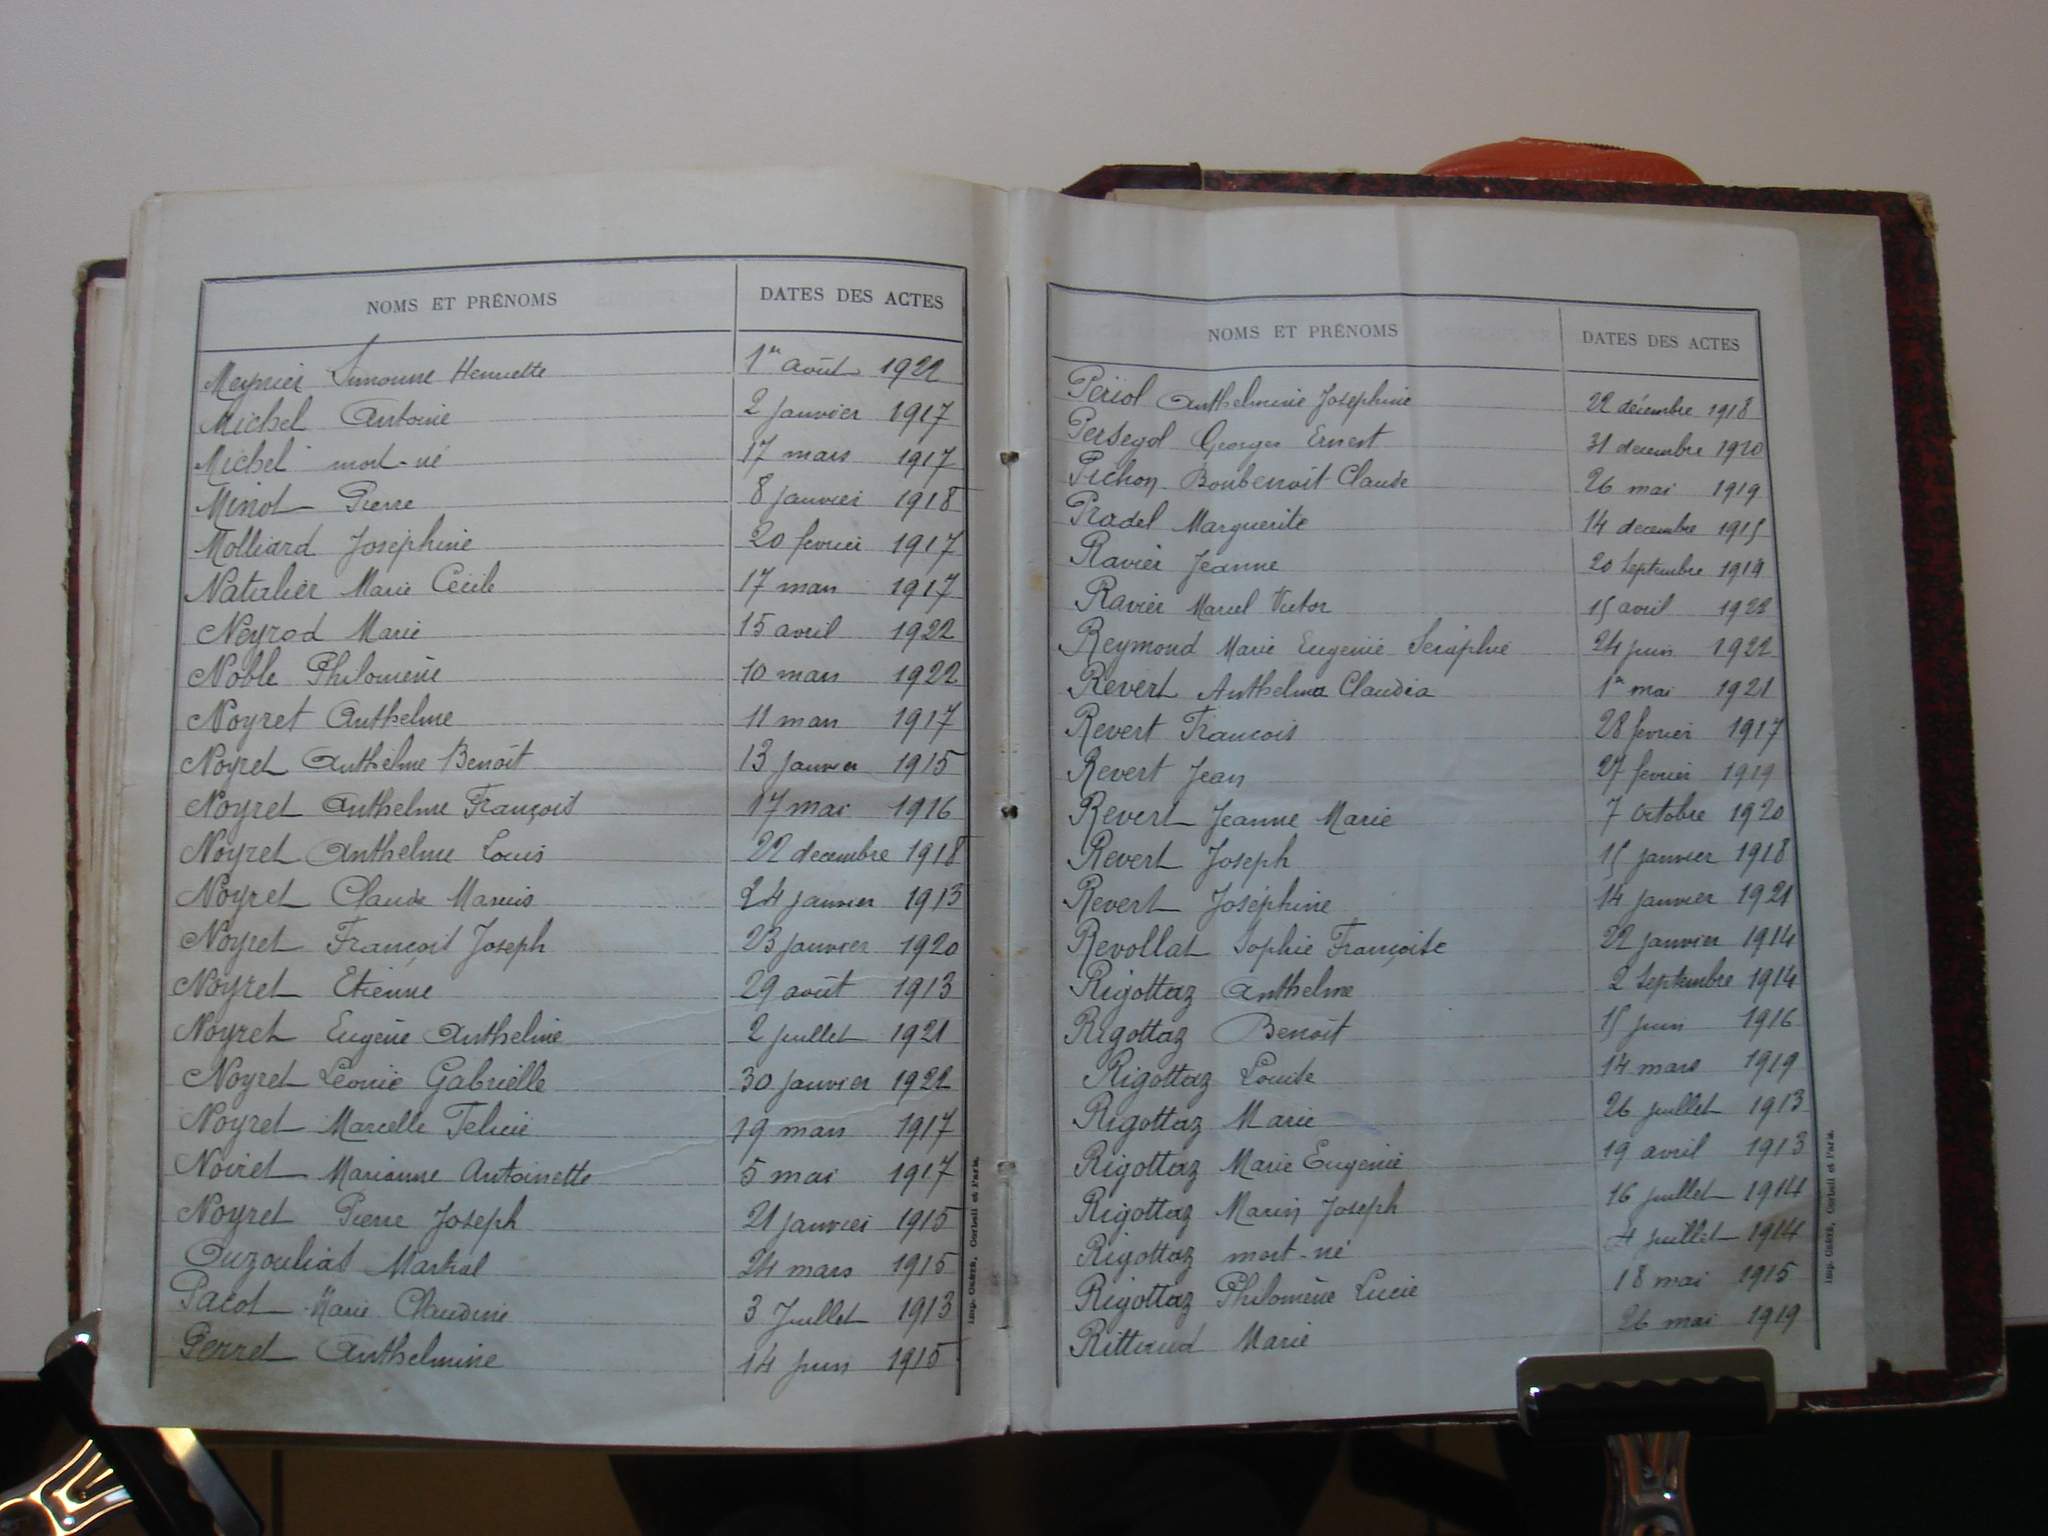 NOMS ET PRÉNOMS DATES DES ACTES
Meynier Simonne Henriette 1er août 1922
Michel Antoine 2 janvier 1917
Michel mort-né 17 mars 1917
Minot Pierre 8 janvier 1918
Molliard Joséphine 20 fevrier 1917
Natalier Marie Cécile 17 mars 1917
Neyrod Marie 15 avril 1922
Noble Philomène 10 mars 1922
Noyret Anthelme 11 mars 1917
Noyret Anthelme Benoît 13 janvier 1915
Noyret Anthelme François 17 mai 1916
Noyret Anthelme Louis 22 decembre 1918
Noyret Claude Marius 24 janvier 1913
Noyret François Joseph 23 janvier 1920
Noyret Etienne 29 août 1913
Noyret Eugène Anthelme 2 juillet 1921
Noyret Leonie Gabrielle 30 janvier 1922
Noyret Marcelle Felicie 19 mars 1917
Noiret Marianne Antoinette 5 mai 1917
Noyret Pierre Joseph 21 janvier 1915
Ouzoulias Martial 24 mars 1915
Pacot Marie Claudine 3 Juillet 1913
Perret Anthelmine 14 juin 1915
Imp. Oudrix, Corbeil et Paris.
NOMS ET PRÉNOMS DATES DES ACTES
Périol Anthelminie Joséphine 22 décembre 1918
Persegol Georges Ernest 31 decembre 1920
Pichon Benoit Claude 26 mai 1919
Pradel Marguerite 14 decembre 1915
Ravier Jeanne 20 Septembre 1919
Ravier Marcel Victor 15 avril 1922
Reymond Marie Eugenie Seraphie 24 juin 1922
Revert Anthelma Claudia 1er mai 1921
Revert François 28 fevrier 1917
Revert Jean 27 fevrier 1919
Revert Jeanne Marie 7 Octobre 1920
Revert Joseph 15 janvier 1918
Revert Joséphine 14 janvier 1921
Revollat Sophie Françoise 22 janvier 1914
Rigottaz Anthelme 2 Septembre 1914
Rigottaz Benoît 15 juin 1916
Rigottaz Louise 14 mars 1919
Rigottaz Marie 26 juillet 1913
Rigottaz Marie Eugenie 19 avril 1913
Rigottaz Marin Joseph 16 juillet 1914
Rigottaz mort-né 4 juillet 1914
Rigottaz Philomène Lucie 18 mai 1915
Rittaud Marie 26 mai 1919
Corbeil et Paris.